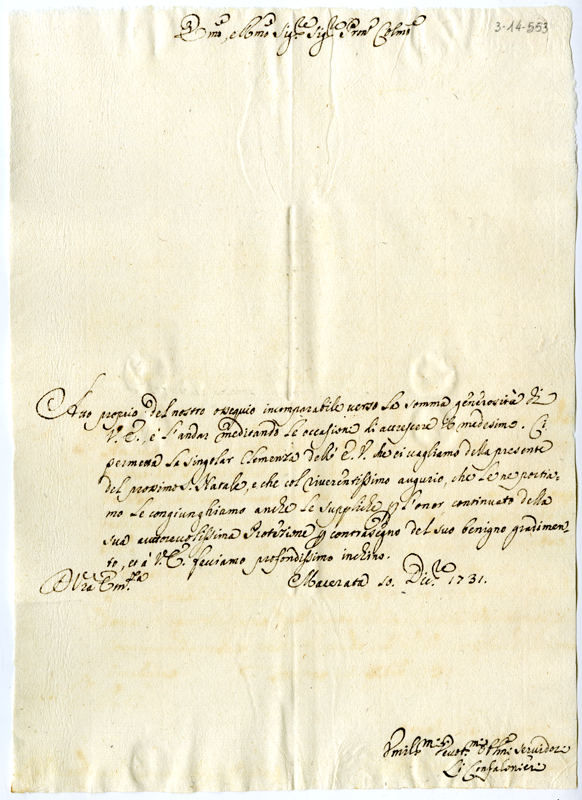 Em.mo, e R.mo Sig.re Sig.re Pron. Colmo
3-14-553
Atto proprio del nostro ossequio incomparabile verso la somma generosità di
V. E. è l'andar meditando le occasione di accrescere il medesimo. Ci
permetta la singolar Clemenza dell' E. V. che ci vagliamo della presente
del prossimo S. Natale, e che col riverentissimo augurio, che le ne portia-
mo le congiunghiamo anche le suppliche p l'onor continuato della
sua autorevolissima Protezione p contrasegno del suo benigno gradimen-
to, et à V. E. facciamo profondissimo inchino.
D V.ra Em.za
Macerata 10. Dic.re 1731.
Umil.mi Devot.mi Servidori
Li Confalonieri